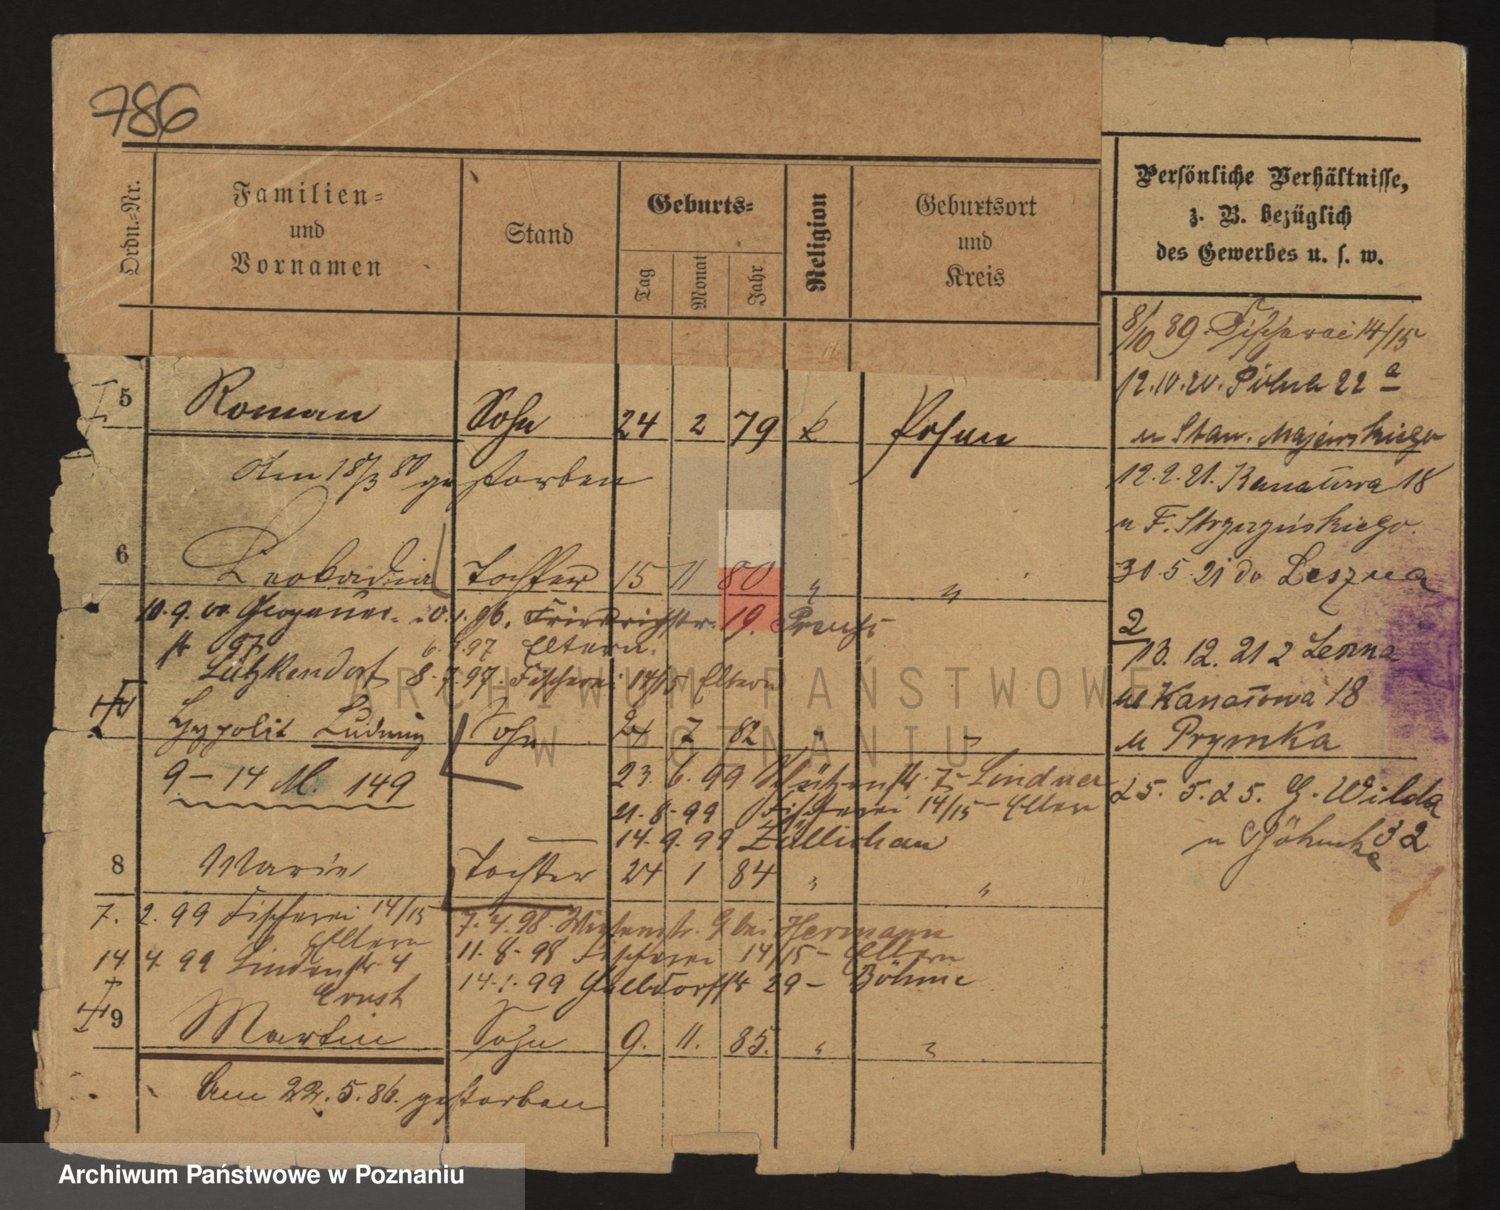 786
Ordn.-Nr.
Familien-
und
Vornamen
Stand
Geburts-
Tag
Monat
Jahr
Religion
Geburtsort
und
Kreis
Persönliche Verhältnisse,
z. B. bezüglich
des Gewerbes u. s. w.
5 Roman Sohn 24 2 79 k Posen
Am 18/3 80 gestorben
6 Leokadia Tochter 15 11 80 " "
10.9. 1.96. Friedrichstr. 19.
6. 97 Eltern.
Lützkendorf 8.7.97. Fischerei 14/15 Eltern
Hypolit Ludwig Sohn 24 7 82 " "
9 – 14 M. 149
23. 6. 99 Schützenstr. Lindner
21.8.99 Fischerei 14/15 – Eltern
14.9.99 Züllichau
8 Marie Tochter 24 1 84 " "
7. 2. 99 Fischerei 14/15
Eltern
7.4.98. Wiesenstr. 9 bei Hermann
11.8.98 Fischerei 14/15 – Eltern
14 4. 99 Lindenstr. 4
Ernst
14.1.99 29 – Böhme
9 Martin Sohn 9. 11. 85. " "
Am 22.5.86. gestorben
8/10 89. Fischerei 14/15
12.10.20. Polna 22 a
u Stan. Majewskiego
12.2.21. Kanałowa 18
u F. Strzyzyńskiego.
30 5 21 do Leszna
2
13. 12. 21 z Leszna
ul Kanałowa 18
u Prymka
25. 5. 25. G. Wilda
32
ARCHIWUM PAŃSTWOWE
W POZNANIU
Archiwum Państwowe w Poznaniu